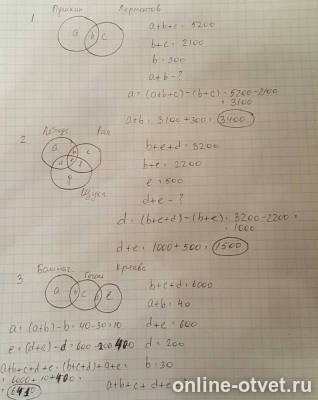 1 Пушкин Лермонтов
a b c
a+b+c = 5200
b+c = 2100
b = 300
a+b - ?
a = (a+b+c)-(b+c) = 5200-2100 = 3100
a+b = 3100+300 = 3400
2 Лебедь Рак
Щука
a c d e g
b+e+d = 3200
b+e = 2200
e = 500
d+e - ?
d = (b+e+d)-(b+e) = 3200-2200 = 1000
d+e = 1000+500 = 1500
3
a b c d e
b+c+d = 6000
a+b = 40
d+e = 600
d = 200
b = 30
a = (a+b)-b = 40-30 = 10
e = (d+e)-d = 600-200 400
a+b+c+d+e = (b+c+d)+a+e =
= 6000+10+400 =
6410
a+b+c+d+e
online-otvet.ru